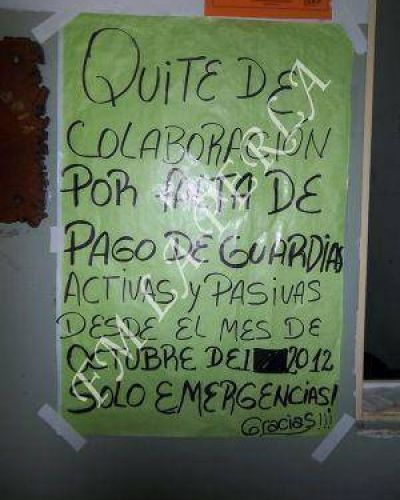 QUITE DE
COLABORACIÓN
POR FALTA DE
PAGO DE GUARDIAS
ACTIVAS y PASIVAS
DESDE EL MES DE
OCTUBRE DEL 2012
SOLO EMERGENCIAS!
Gracias!!!
FM LA PERLA